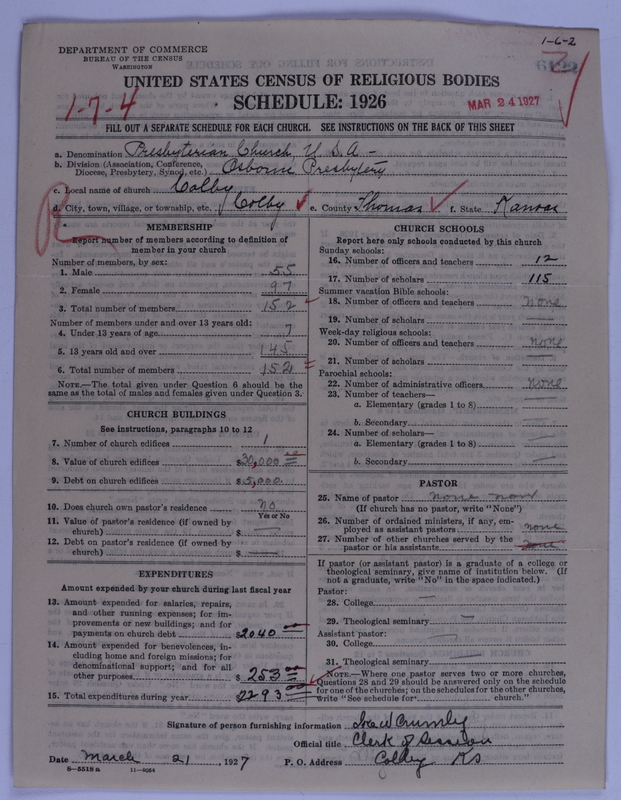 1-6-2
DEPARTMENT OF COMMERCE
BUREAU OF THE CENSUS
WASHINGTON
UNITED STATES CENSUS OF RELIGIOUS BODIES
1-7-4
SCHEDULE: 1926
MAR 24 1927
FILL OUT A SEPARATE SCHEDULE FOR EACH CHURCH. SEE INSTRUCTIONS ON THE BACK OF THIS SHEET
a. Denomination Presbyterian Church, U.S.A-
b. Division (Association, Conference, Diocese, Presbytery, Synod, etc.) Osborne Presbytery
c. Local name of church Colby
d. City, town, village, or township, etc. Colby e. County Thomas f. State Kansas
MEMBERSHIP
Report number of members according to definition of
member in your church
Number of members, by sex:
1. Male 55
2. Female 97
3. Total number of members 152
Number of members under and over 13 years old:
4. Under 13 years of age 7
5. 13 years old and over 145
6. Total number of members 152
NOTE.—The total given under Question 6 should be
same as the total of males and females given under Question 3.
CHURCH BUILDINGS
See instructions, paragraphs 10 to 12
7. Number of church edifices 1
8. Value of church edifices $30,000 00
9. Debt on church edifices $5,000
10. Does church own pastor's residence no
Yes or No
11. Value of pastor's residence (if owned by
church) $ —
12. Debt on pastor's residence (if owned by
church) $ —
EXPENDITURES
Amount expended by your church during last fiscal year
13. Amount expended for salaries, repairs,
and other running expenses; for im-
provements or new buildings; and for
payments on church debt $2040 00
14. Amount expended for benevolences, in-
cluding home and foreign missions; for
denominational support; and for all
other purposes $253 00
15. Total expenditures during year $2293 00
CHURCH SCHOOLS
Report here only schools conducted by this church
Sunday schools:
16. Number of officers and teachers 12
17. Number of scholars 115
Summer vacation Bible schools:
18. Number of officers and teachers none
19. Number of scholars —
Week-day religious schools:
20. Number of officers and teachers none
21. Number of scholars —
Parochial schools:
22. Number of administrative officers none
23. Number of teachers—
a. Elementary (grades 1 to 8) —
b. Secondary —
24. Number of scholars—
a. Elementary (grades 1 to 8) —
b. Secondary —
PASTOR
25. Name of pastor none now
(If church has no pastor, write "None")
26. Number of ordained ministers, if any, em-
ployed as assistant pastors none
27. Number of other churches served by the
pastor or his assistants none
If pastor (or assistant pastor) is a graduate of a college or
theological seminary, give name of institution below. (If
not a graduate, write "No" in the space indicated.)
Pastor:
28. College —
29. Theological seminary —
Assistant pastor:
30. College —
31. Theological seminary —
NOTE.—Where one pastor serves two or more churches,
Questions 28 and 29 should be answered only on the schedule
for one of the churches; on the schedules for the other churches,
write "See schedule for church."
Signature of person furnishing information Ira W Crumly
Official title Clerk of Session
Date March 21, 1927 P. O. Address Colby Ks
8-5518 a 11-9064